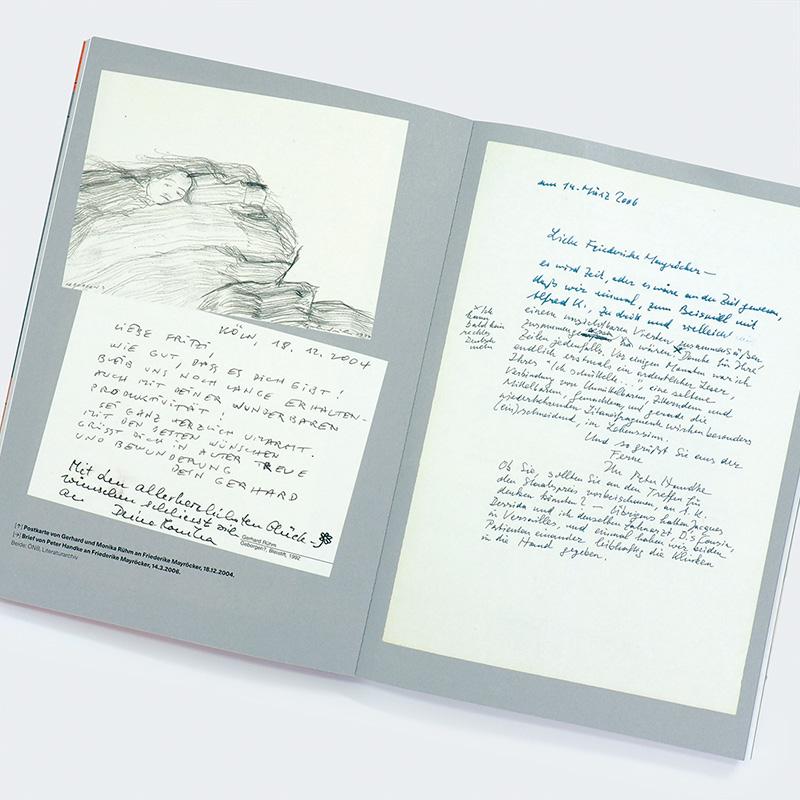 KÖLN, 18.12.2004
LIEBE FRITZI,
WIE GUT, DASS ES DICH GIBT!
BLEIB UNS NOCH LANGE ERHALTEN –
AUCH MIT DEINER WUNDERBAREN
PRODUKTIVITÄT!
SEI GANZ HERZLICH UMARMT.
MIT DEN BESTEN WÜNSCHEN
GRÜSST DICH IN ALTER TREUE
UND BEWUNDERUNG
DEIN GERHARD
Mit den allerherzlichsten Glück-
wünschen schliesst sich
an
Deine Monika
Gerhard Rühm
Geborgen?, Bleistift, 1992
[↑] Postkarte von Gerhard und Monika Rühm an Friederike Mayröcker, 18.12.2004.
[→] Brief von Peter Handke an Friederike Mayröcker, 14.3.2006.
Beide: ÖNB, Literaturarchiv
am 14. März 2006
Liebe Friederike Mayröcker –
es wird Zeit, oder es wäre an der Zeit gewesen,
daß wir einmal, zum Beispiel mit
Alfred K., zu dritt und vielleicht
einem unsichtbaren Vierten
zusammen wären. x Danke für Ihre
Zeilen jedenfalls. Vor einigen Monaten war ich
endlich erstmals ein ordentlicher Leser,
Ihres "Ich schüttelte...", eine seltene
Verbindung von Unmittelbarem, Zitterndem und
Mittelbarem, und gerade die
wiederkehrenden wirken besonders
(ein)schneidend, im Lebenssinn.
Und so grüßt Sie aus der
Ferne
Ihr Peter Handke
x Ich
kann
bald kein
rechtes
Deutsch
mehr
Ob Sie, sollten Sie an den Treffen für
den Staatspreis vorbeikommen, an A. K.
denken könnten? – Übrigens haben Jacques
Derrida und ich denselben Zahnarzt, D.'s Cousin,
in Versailles, und einmal haben wir beiden
Patienten einander leibhaftig die Klinken
in die Hand gegeben.